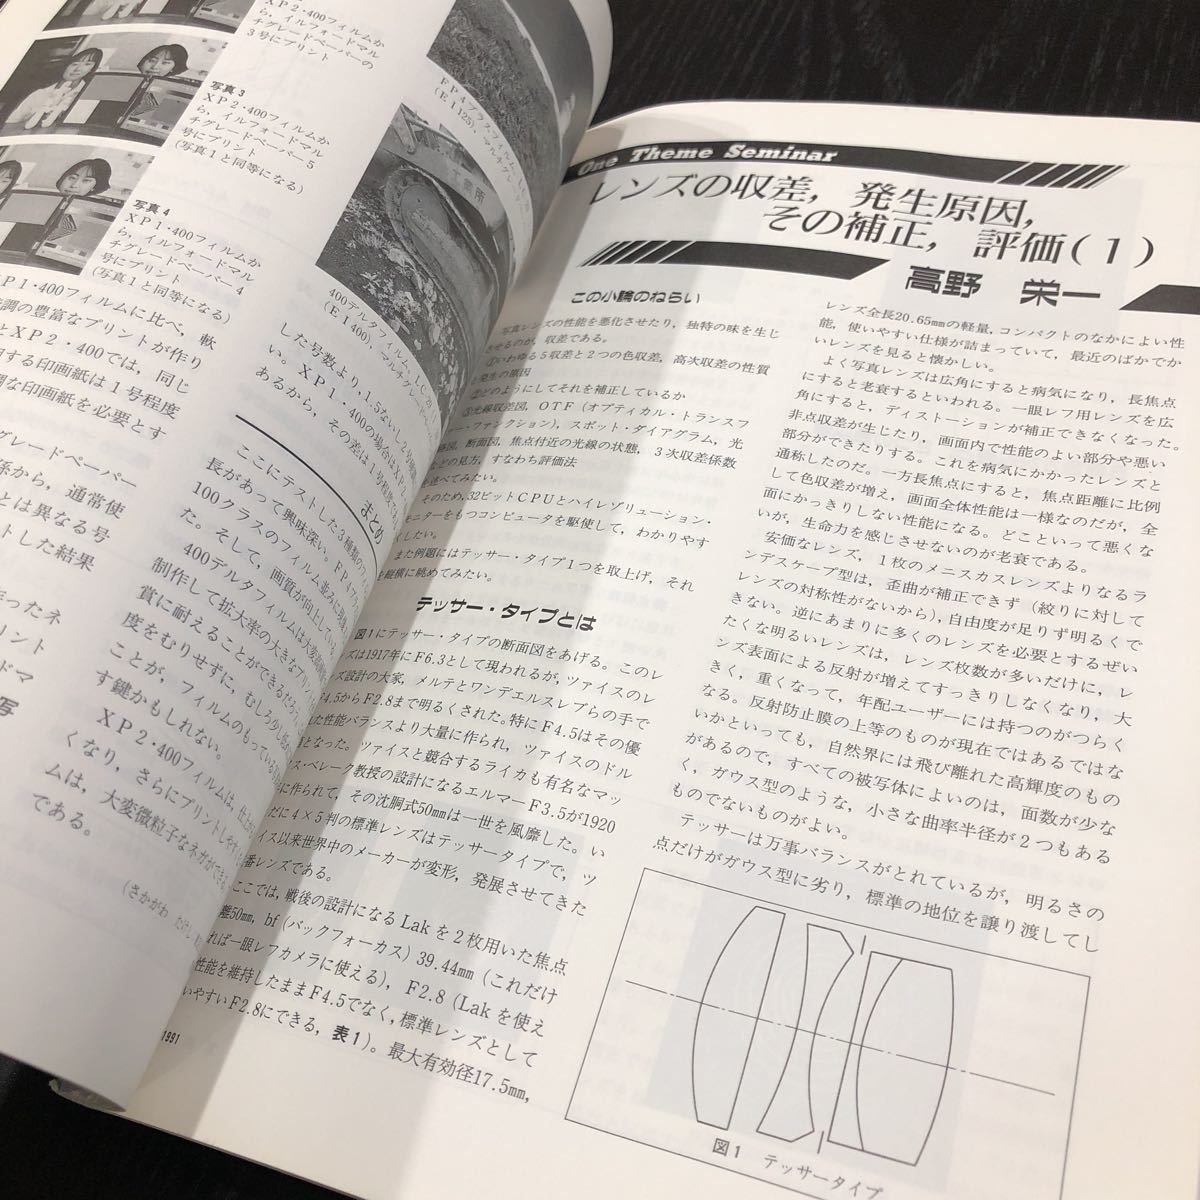 XP2・400フィルムか
ら，イルフォードマル
チグレードペーパーの
3号にプリント
写真3
XP2・400フィルムか
ら，イルフォードマル
チグレードペーパー5
号にプリント
(写真1と同等になる)
写真4
XP1・400フィルムか
ら，イルフォードマル
チグレードペーパー4
号にプリント
(写真1と同等になる)
(EI125)，マルチグレ
400デルタフィルム，
(EI400)，マルチグレー
1・400フィルムに比べ，軟
調の豊富なプリントが作り
とXP2・400では，同じ
する印画紙は1号程度
な印画紙を必要とす
グレードペーパー
係から，通常使
とは異なる号
トした結果
ったネ
リント
ドマ
写
した号数より，1.5ないし2
い。XP1・400の場合はXP2・
あるから，その差は1号程度
まとめ
ここにテストした3種類の
長があって興味深い。FP4
100クラスのフィルム並みに
た。そして，画質が向上している
400デルタフィルムは大変
制作して拡大率の大きなプリ
賞に耐えることができるだろう。
度をむりせずに，むしろ
ことが，フィルムのもっている
す鍵かもしれない。
XP2・400フィルムは，
くなり，さらにプリントしやす
ムは，大変微粒子なネガができる
である。
(さかがわ
One Theme Seminar
レンズの収差，発生原因，
その補正，評価(1)
高野　栄一
この小論のねらい
写真レンズの性能を悪化させたり，独特の味を生じ
させるのが，収差である。
①いわゆる5収差と2つの色収差，高次収差の性質
と発生の原因
②どのようにしてそれを補正しているか
③光線収差図，OTF（オプティカル・トランスフ
ー・ファンクション)，スポット・ダイアグラム，光
路図，断面図，焦点付近の光線の状態，3次収差係数
などの見方，すなわち評価法
を述べてみたい。
そのため，32ビットCPUとハイレゾリューション・
モニターをもつコンピュータを駆使して，わかりやす
くしたい。
また例題にはテッサー・タイプ1つを取上げ，それ
を縦横に眺めてみたい。
テッサー・タイプとは
図1にテッサー・タイプの断面図をあげる。このレ
ンズは1917年にF6.3として現われるが，ツァイスのレ
ンズ設計の大家，メルテとワンデルスレブらの手で
F4.5からF2.8まで明るくされた。特にF4.5はその優
れた性能バランスより大量に作られ，ツァイスのドル
となった。ツァイスと競合するライカも有名なマッ
ス・ベレーク教授の設計になるエルマーF3.5が1920
に作られて，その沈胴式50mmは一世を風靡した。い
だに4×5判の標準レンズはテッサータイプで，ツ
ァイス以来世界中のメーカーが変形，発展させてきた
番レンズである。
ここでは，戦後の設計になるLakを2枚用いた焦点
距離50mm，bf（バックフォーカス）39.44mm（これだけ
あれば一眼レフカメラに使える)，F2.8（Lakを使え
性能を維持したままF4.5でなく，標準レンズとして
いやすいF2.8にできる，表1)。最大有効径17.5mm，
1991
レンズ全長20.65mmの軽量，コンパクトのなかによい性
能，使いやすい仕様が詰まっていて，最近のばかでか
いレンズを見ると懐かしい。
よく写真レンズは広角にすると病気になり，長焦点
にすると老衰するといわれる。一眼レフ用レンズを広
角にすると，ディストーションが補正できなくなった。
非点収差が生じたり，画面内で性能のよい部分や悪い
部分ができたりする。これを病気にかかったレンズと
通称したのだ。一方長焦点にすると，焦点距離に比例
して色収差が増え，画面全体性能は一様なのだが，全
面にかっきりしない性能になる。どこといって悪くな
いが，生命力を感じさせないのが老衰である。
安価なレンズ，1枚のメニスカスレンズよりなるラ
ンデスケープ型は，歪曲が補正できず（絞りに対して
レンズの対称性がないから)，自由度が足りず明るくで
きない。逆にあまりに多くのレンズを必要とするぜい
たくな明るいレンズは，レンズ枚数が多いだけに，レ
ンズ表面による反射が増えてすっきりしなくなり，大
きく，重くなって，年配ユーザーには持つのがつらく
なる。反射防止膜の上等のものが現在ではあるではな
いかといっても，自然界には飛び離れた高輝度のもの
があるので，すべての被写体によいのは，面数が少な
く，ガウス型のような，小さな曲率半径が2つもある
ものでないものがよい。
テッサーは万事バランスがとれているが，明るさの
点だけがガウス型に劣り，標準の地位を譲り渡してし
図1　テッサータイプ